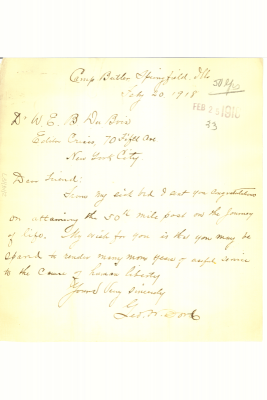 Camp Butler Springfield, Ills
Feby 20, 1918
FEB 23 1918
Dr W. E. B. Du Bois
Editor Crisis, 70 Fifth Ave
New York City
Dear Friend:
From my sick bed I send you Congratulations
on attaining the 50th mile post on the journey
of life. My wish for you is that you may be
spared to render many more years of useful service
to the Cause of human liberty
Yours very sincerely
Geo. W. Ford